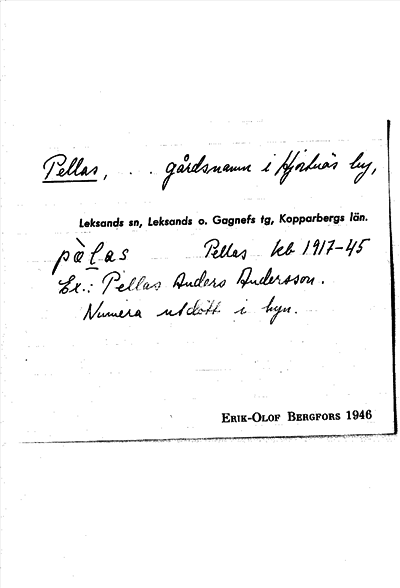 Pellas, . . gårdsnamn i Hjortnäs by,
Leksands sn, Leksands o. Gagnefs tg, Kopparbergs län.
pὰl̠as Pellas kb 1917-45
Ex.: Pellas Anders Andersson.
Numera utdött i byn.
ERIK-OLOF BERGFORS 1946